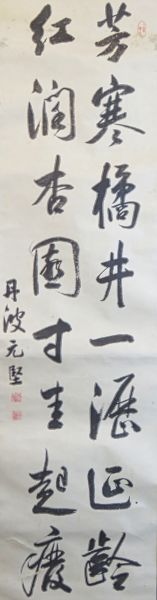 芳寒橘井一瀝延齡
紅潤杏園寸圭起癈
丹波元堅